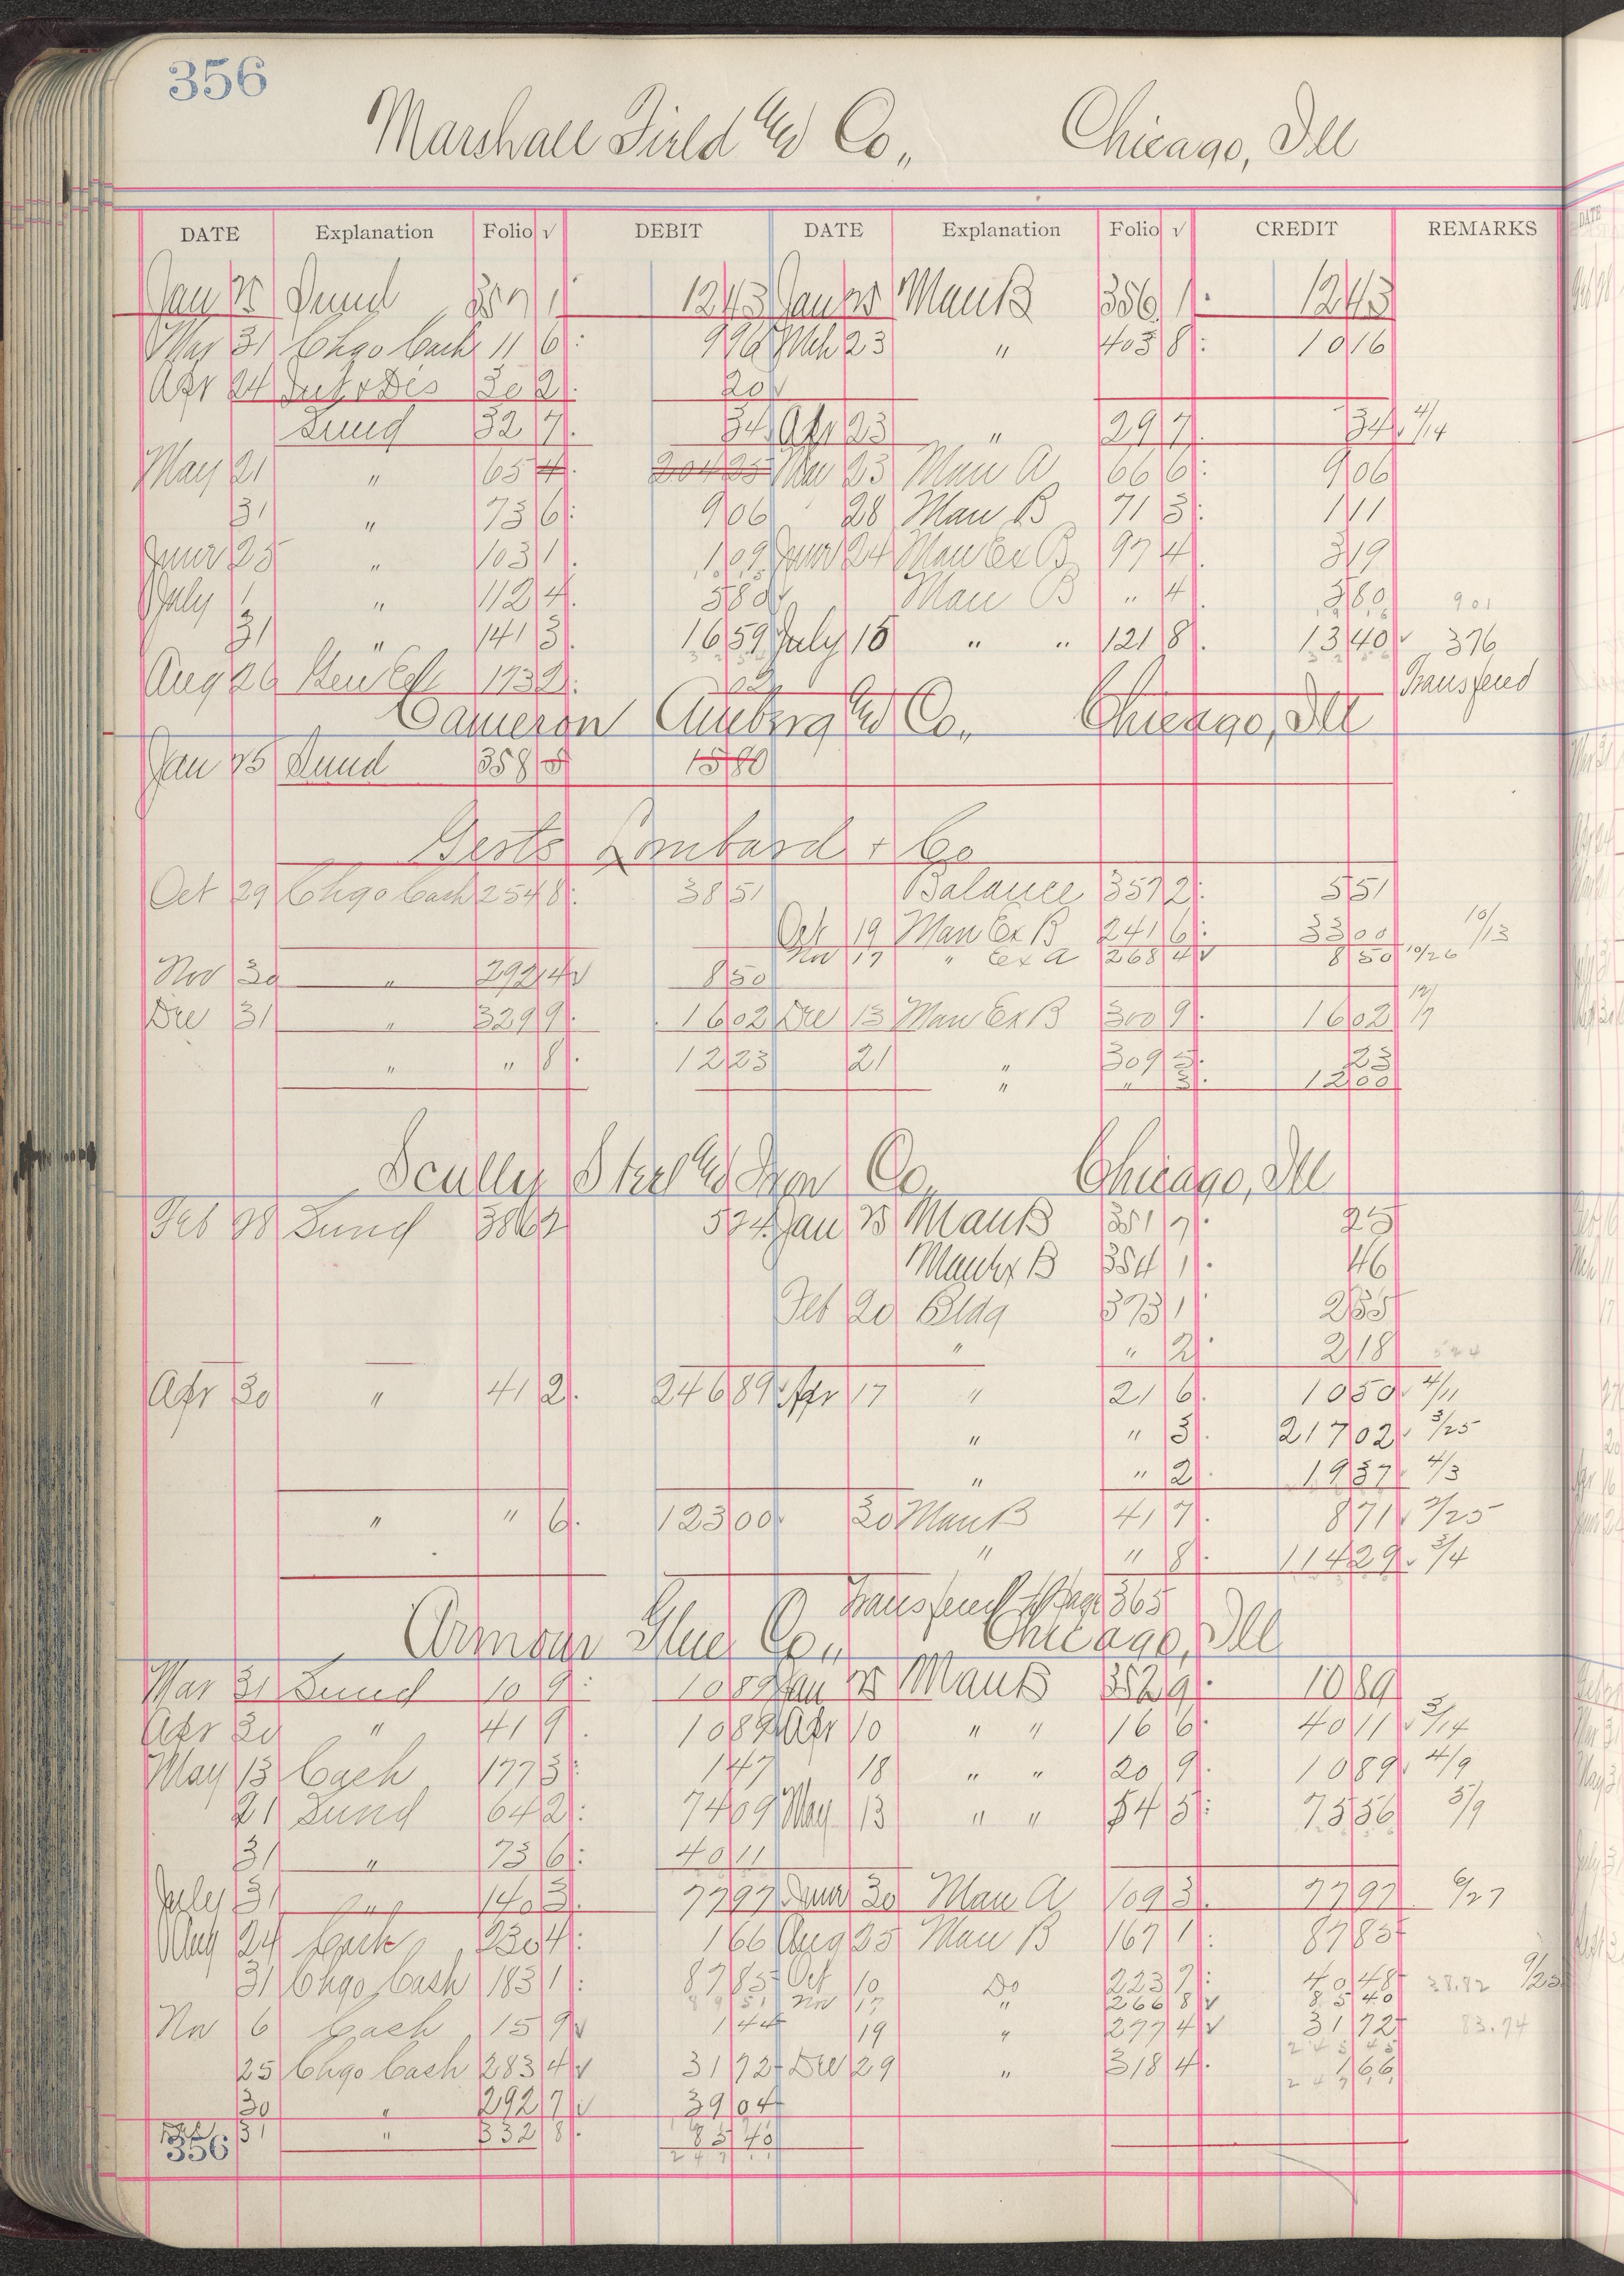 356
Marshall Field and Co., Chicago, Ill
DATE Explanation Folio √ DEBIT DATE Explanation Folio √ CREDIT REMARKS
Jan 25 Sund 357 1 12 43 Jan 25 Man B 356 1 12 43
Mar 31 Chgo Cash 11 6 9 96 Mch 23 " 403 8 10 16
Apr 24 Int & Dis 30 2 20
Sund 32 7 34 Apr 23 " 29 7 34 4/14
May 21 " 65 4 204 25 May 23 Man A 66 6 9 06
31 " 73 6 9 06 28 Man B 71 3 1 11
June 25 " 103 1 1 09 June 24 Man Ex B 97 4 3 19
July 1 " 112 4 5 80 Man B " 4 2 60 901
31 " 141 3 16 59 July 15 " " 121 8 13 40 376
Aug 26 173 2 02 Transferd
Cameron Amberg and Co., Chicago, Ill
Jan 25 Sund 358 5 15 80
Gerts Lombard & Co
Oct 29 Chgo Cash 254 8 38 51 Balance 357 2 5 51
Oct 19 Man Ex B 241 6 33 00 10/13
Nov 17 " Ex A 268 4 √ 8 50 10/26
Nov 30 " 292 4 √ 8 50
Dec 31 " 329 9 16 02 Dec 13 Man Ex B 300 9 16 02 12/7
" " 8 12 23 21 " 309 3 23
" " 3 12 00
Scully Steel and Iron Co., Chicago, Ill
Feb 28 Sund 386 2 5 24 Jan 25 Man B 351 7 25
Man Ex B 354 1 46
Feb 20 Bldg 373 1 2 35
" " 2 2 18 524
Apr 30 " 41 2 246 89 Apr 17 " 21 6 10 50 4/11
" " 3 217 02 3/25
" " 2 19 37 4/3
" " 6 123 00 30 Man B 41 7 8 71 3/25
" " 8 114 29 3/4
Transferred to Page 365
Armour Glue Co., Chicago, Ill
Mar 31 Sund 10 9 10 89 Jan 25 Man B 352 9 10 89
Apr 30 " 41 9 10 89 Apr 10 " " 16 6 40 11 3/14
May 13 Cash 177 3 1 47 18 " " 20 9 10 89 4/9
21 Sund 64 2 74 09 May 13 " " 54 5 75 56 5/9
31 " 73 6 40 11
July 31 " 140 3 77 97 June 30 Man A 109 3 77 97 6/27
Aug 24 Cash 230 4 1 66 Aug 25 Man B 167 1 87 85
31 Chgo Cash 183 1 87 85 Oct 10 Do 223 7 40 48 38.82 9/23
Nov 17 " 266 8 √ 85 40
Nov 6 Cash 15 9 √ 1 44 19 " 277 4 √ 31 72 83.74
25 Chgo Cash 283 4 √ 31 72 Dec 29 " 318 4 1 66
30 " 292 7 √ 39 04
31 " 332 8 83 40
356